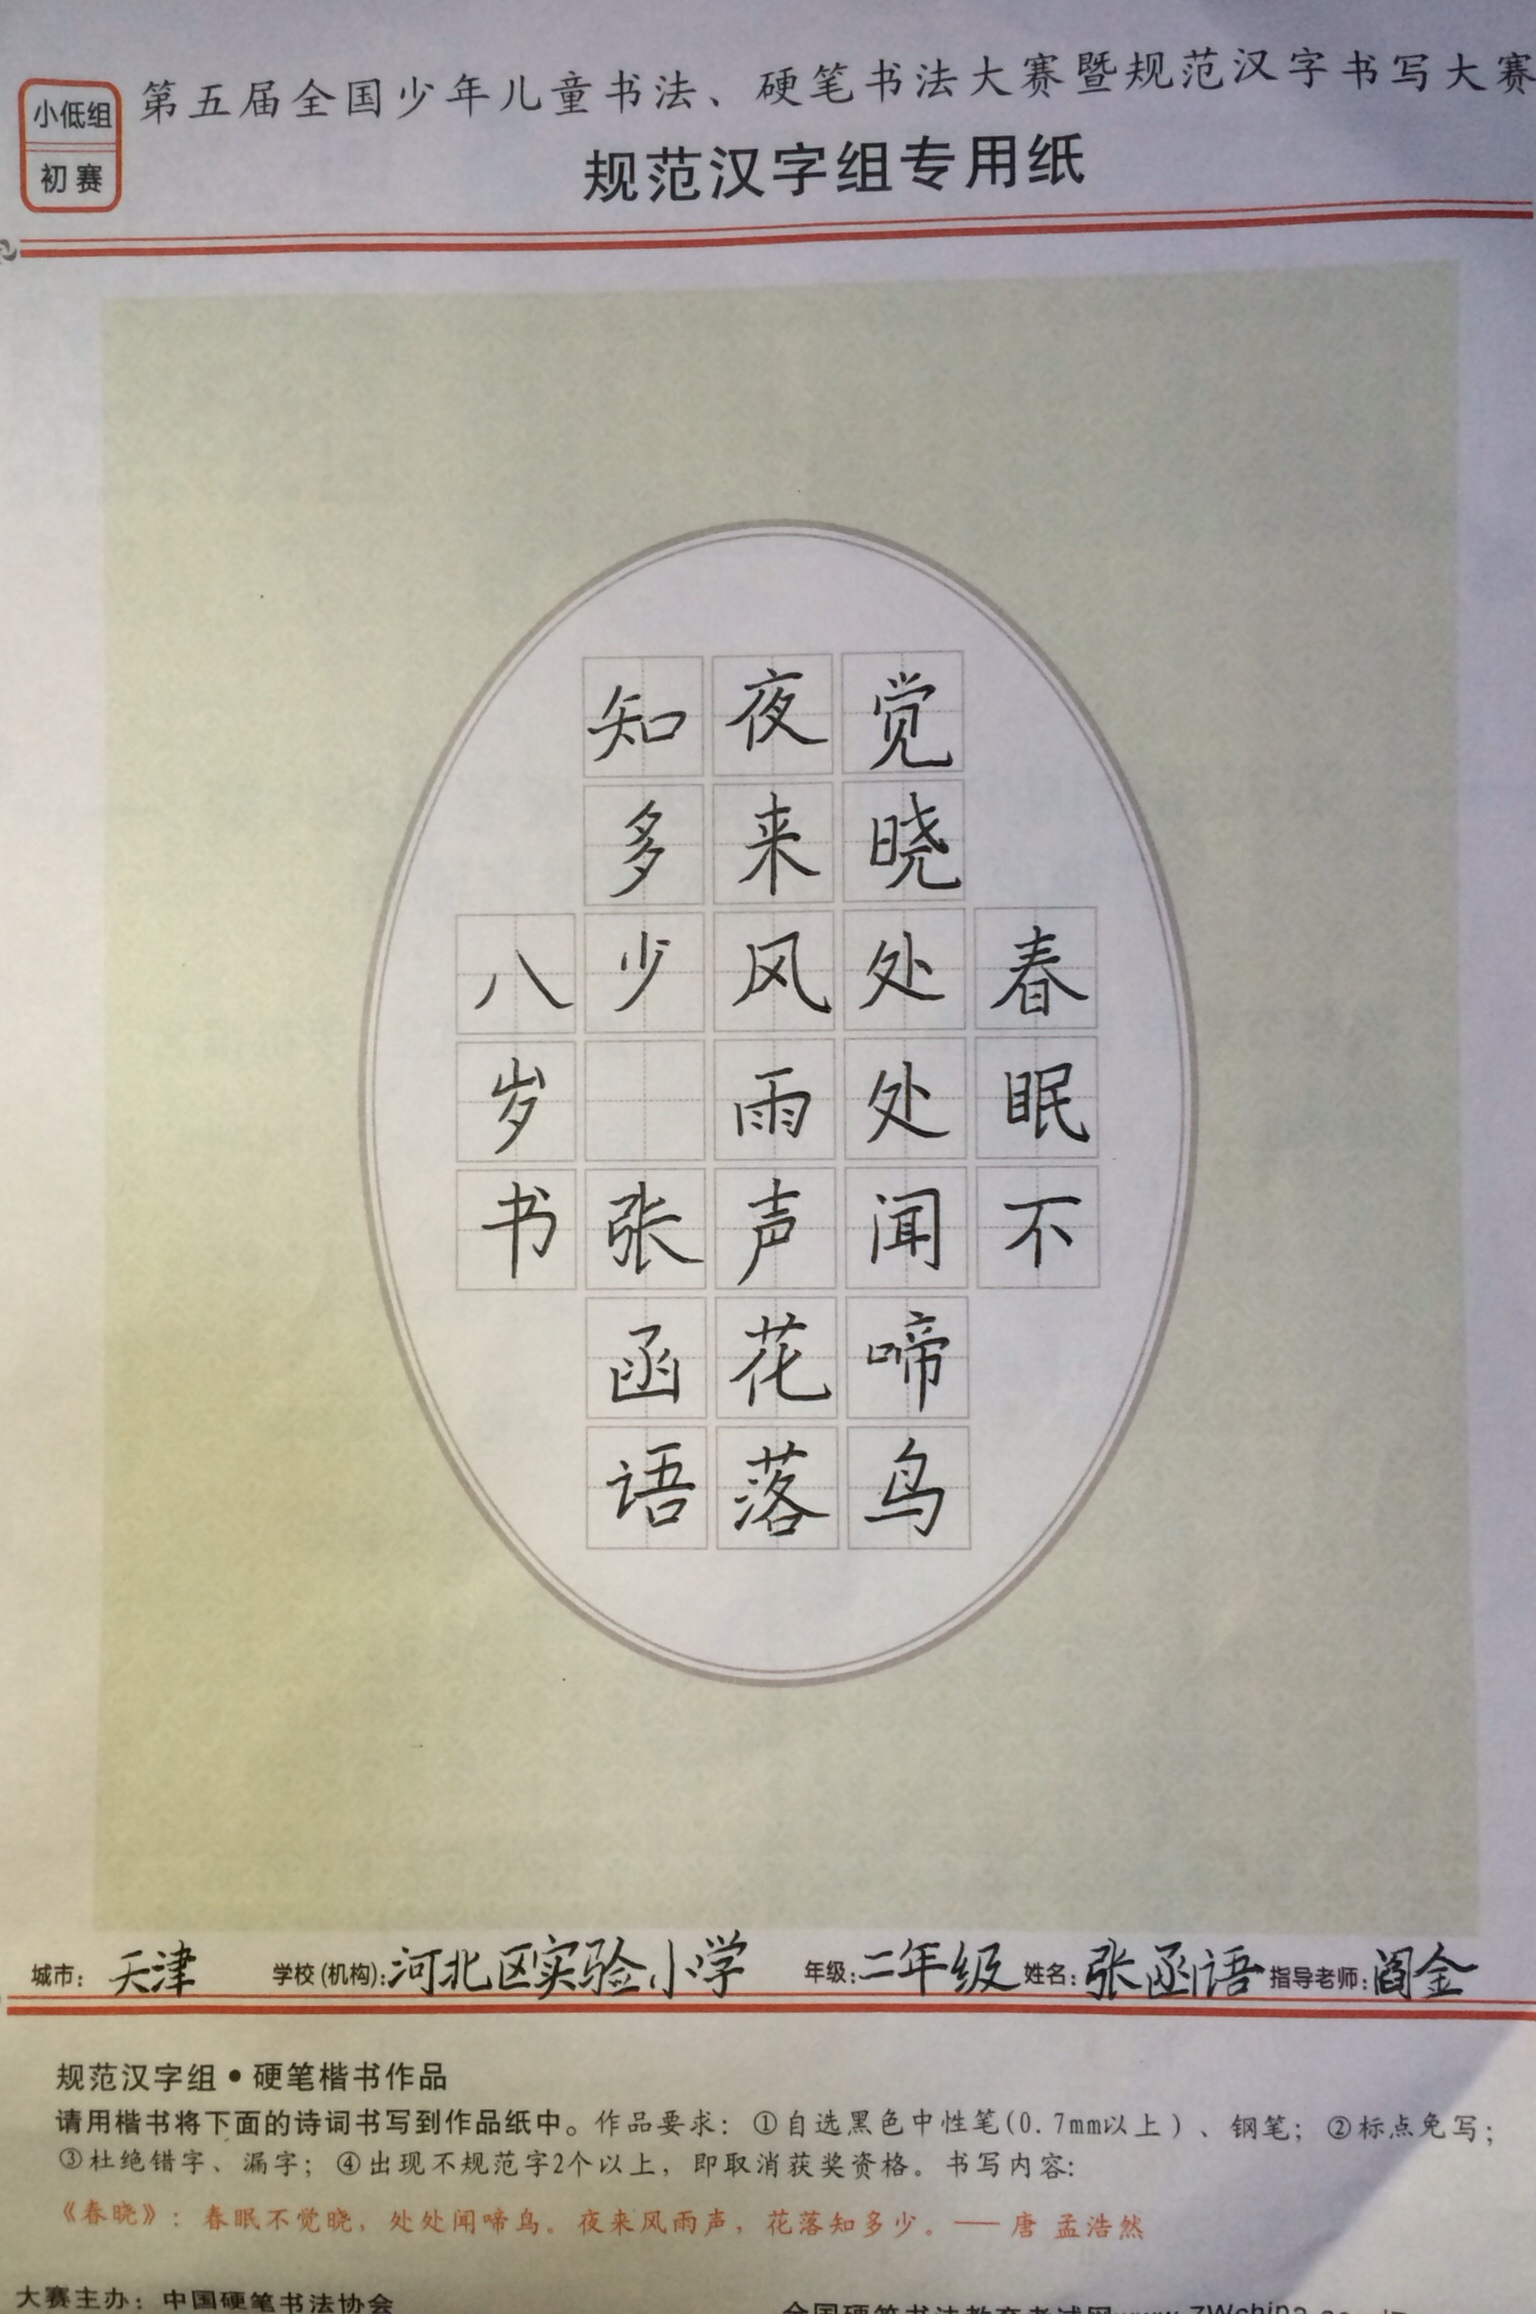 小低组
初赛
第五届全国少年儿童书法、硬笔书法大赛暨规范汉字书写大赛
规范汉字组专用纸
春眠不
觉晓处处闻啼鸟
夜来风雨声花落
知多少 张函语
八岁书
城市：天津 学校(机构)：河北区实验小学 年级：二年级 姓名：张函语 指导老师：阎金
规范汉字组•硬笔楷书作品
请用楷书将下面的诗词书写到作品纸中。作品要求：①自选黑色中性笔(0.7mm以上）、钢笔；②标点免写；
③杜绝错字、漏字；④出现不规范字2个以上，即取消获奖资格。书写内容：
《春晓》：春眠不觉晓，处处闻啼鸟。夜来风雨声，花落知多少。—— 唐 孟浩然
大赛主办：中国硬笔书法协会
全国硬笔书法教育考试网www.zwchina.